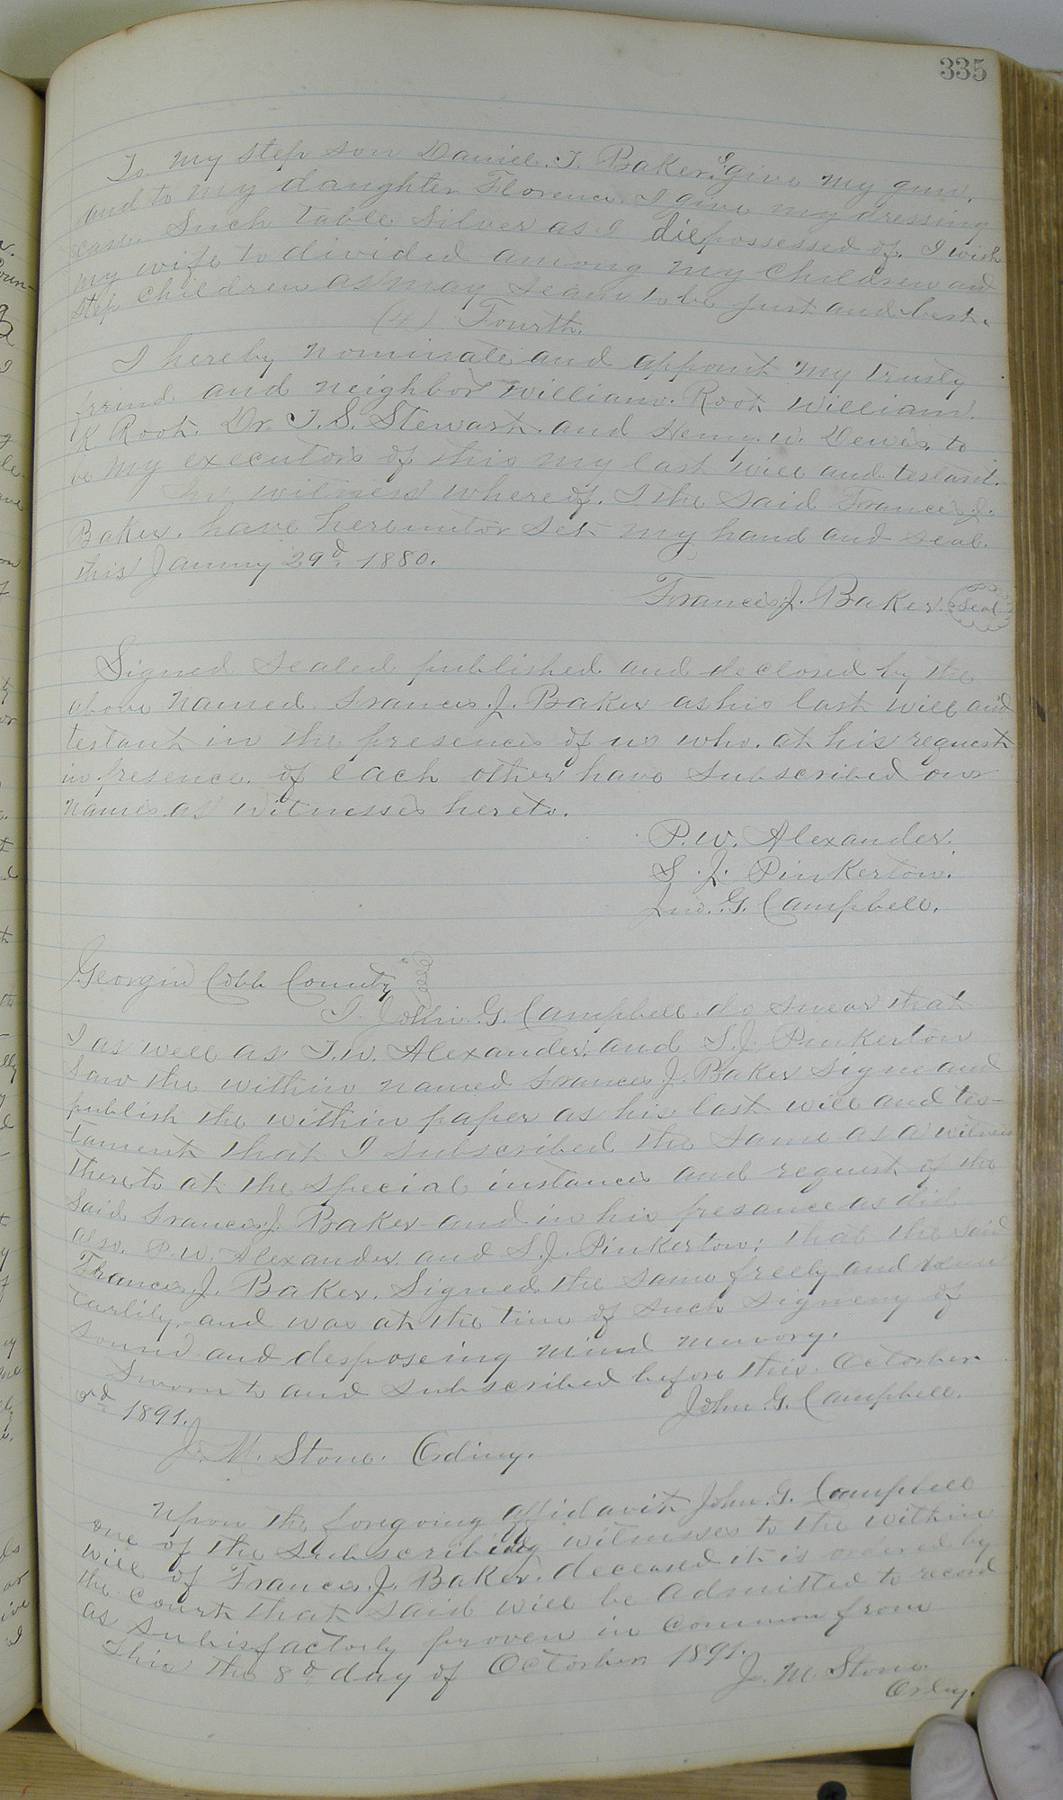 335
To my step son Daniel. T. Baker. I give my gun.
and to my daughter Florence I give my dressing
case Such table Silver as I die possessed of. I wish
my wife to divided among my children and
step children as may seam to be just and best.
(4) Fourth.
I hereby nominate and appoint my trusty
frind and neighbor William. Root William.
K Root. Dr. T. S. Stewart. and Henry. W. Dewis, to
be my executors of this my last will and testant.
In witness whereof. I the Said Francis J.
Baker. have hereunitor Set my hand and seal.
this January 29d 1880.
Francis. J. Baker. Seal
Signed Sealed published and declosed by the
above named Francis. J. Baker as his last will and
testant in the presence of us who. at his request
in presence. of each other have Subscribed our
names as witnesses hereto.
P. W. Alexander.
S. J. Pinkerton.
Jno. G. Campbell.
Georgia Cobb County
I John. G. Campbell do swear that
I as well as T. W. Alexander. and S. J. Pinkerton
Saw the within named Francis J. Baker Signe and
publish the within paper as his last will and tes-
tament that I subscribed the Same as a witness
thereto at the special instance and request of the
Said Francis. J. Baker and in his presance as did
also. P. W. Alexander and S. J. Pinkerton; that the said
Francis J. Baker. Signed the Same freely and volun
turlily, and was at the time of Such Signeny of
sound and desposeing mind memory.
Sworn to and subscribed before this. October
1891.
John G. Campbell.
J. M. Stone. Ordiny.
Upon the foregoing affidavit John. G. Campbell
one of the subscribing witnesses to the within
will of Francis. J. Baker. deceased it is orered by
the court that Said will be admitted to record
as subisfactorly proven in common from
This the 8d day of October 1891.
J. M Stone.
Ordny.